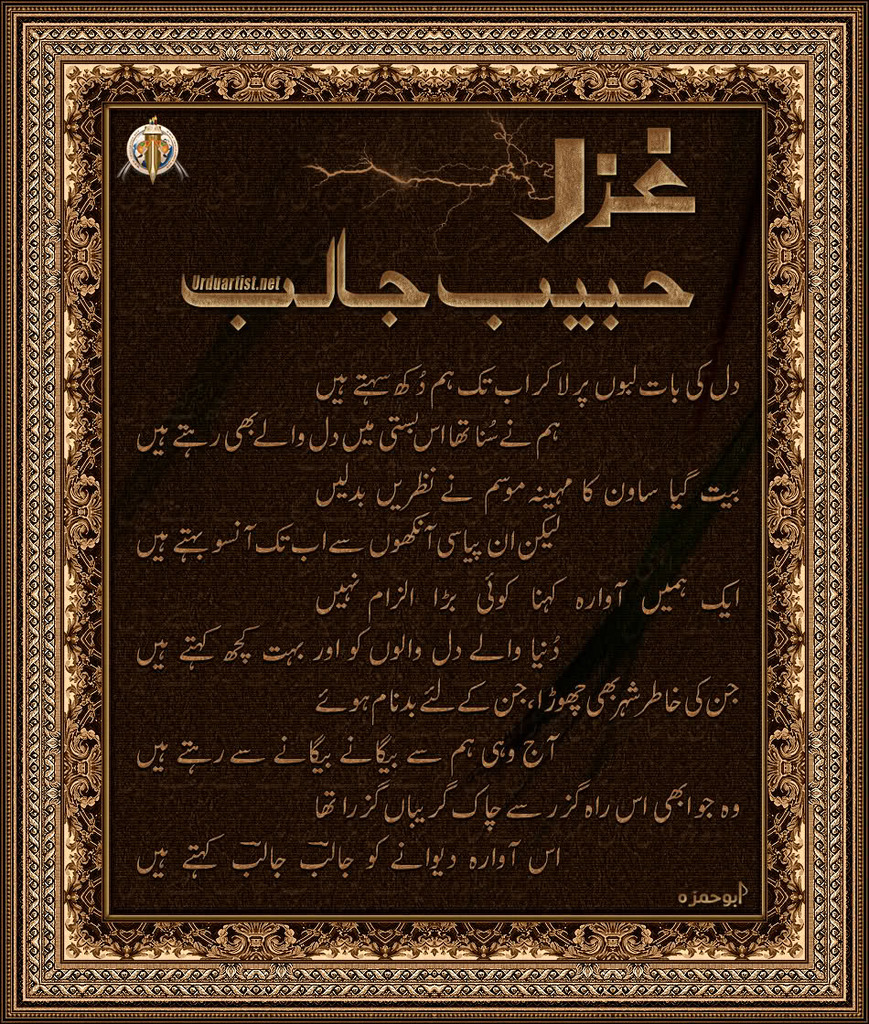 غزل
حبیب جالب
Urduartist.net
دل کی بات لبوں پر لا کر اب تک ہم دُکھ سہتے ہیں
ہم نے سُنا تھا اس بستی میں دل والے بھی رہتے ہیں
بیت گیا ساون کا مہینہ موسم نے نظریں بدلیں
لیکن ان پیاسی آنکھوں سے اب تک آنسو بہتے ہیں
ایک ہمیں آوارہ کہنا کوئی بڑا الزام نہیں
دُنیا والے دل والوں کو اور بہت کچھ کہتے ہیں
جن کی خاطر شہر بھی چھوڑا، جن کے لئے بدنام ہوئے
آج وہی ہم سے بیگانے بیگانے سے رہتے ہیں
وہ جو ابھی اس راہ گزر سے چاک گریباں گزرا تھا
اس آوارہ دیوانے کو جالبؔ جالبؔ کہتے ہیں
ابوحمزہ